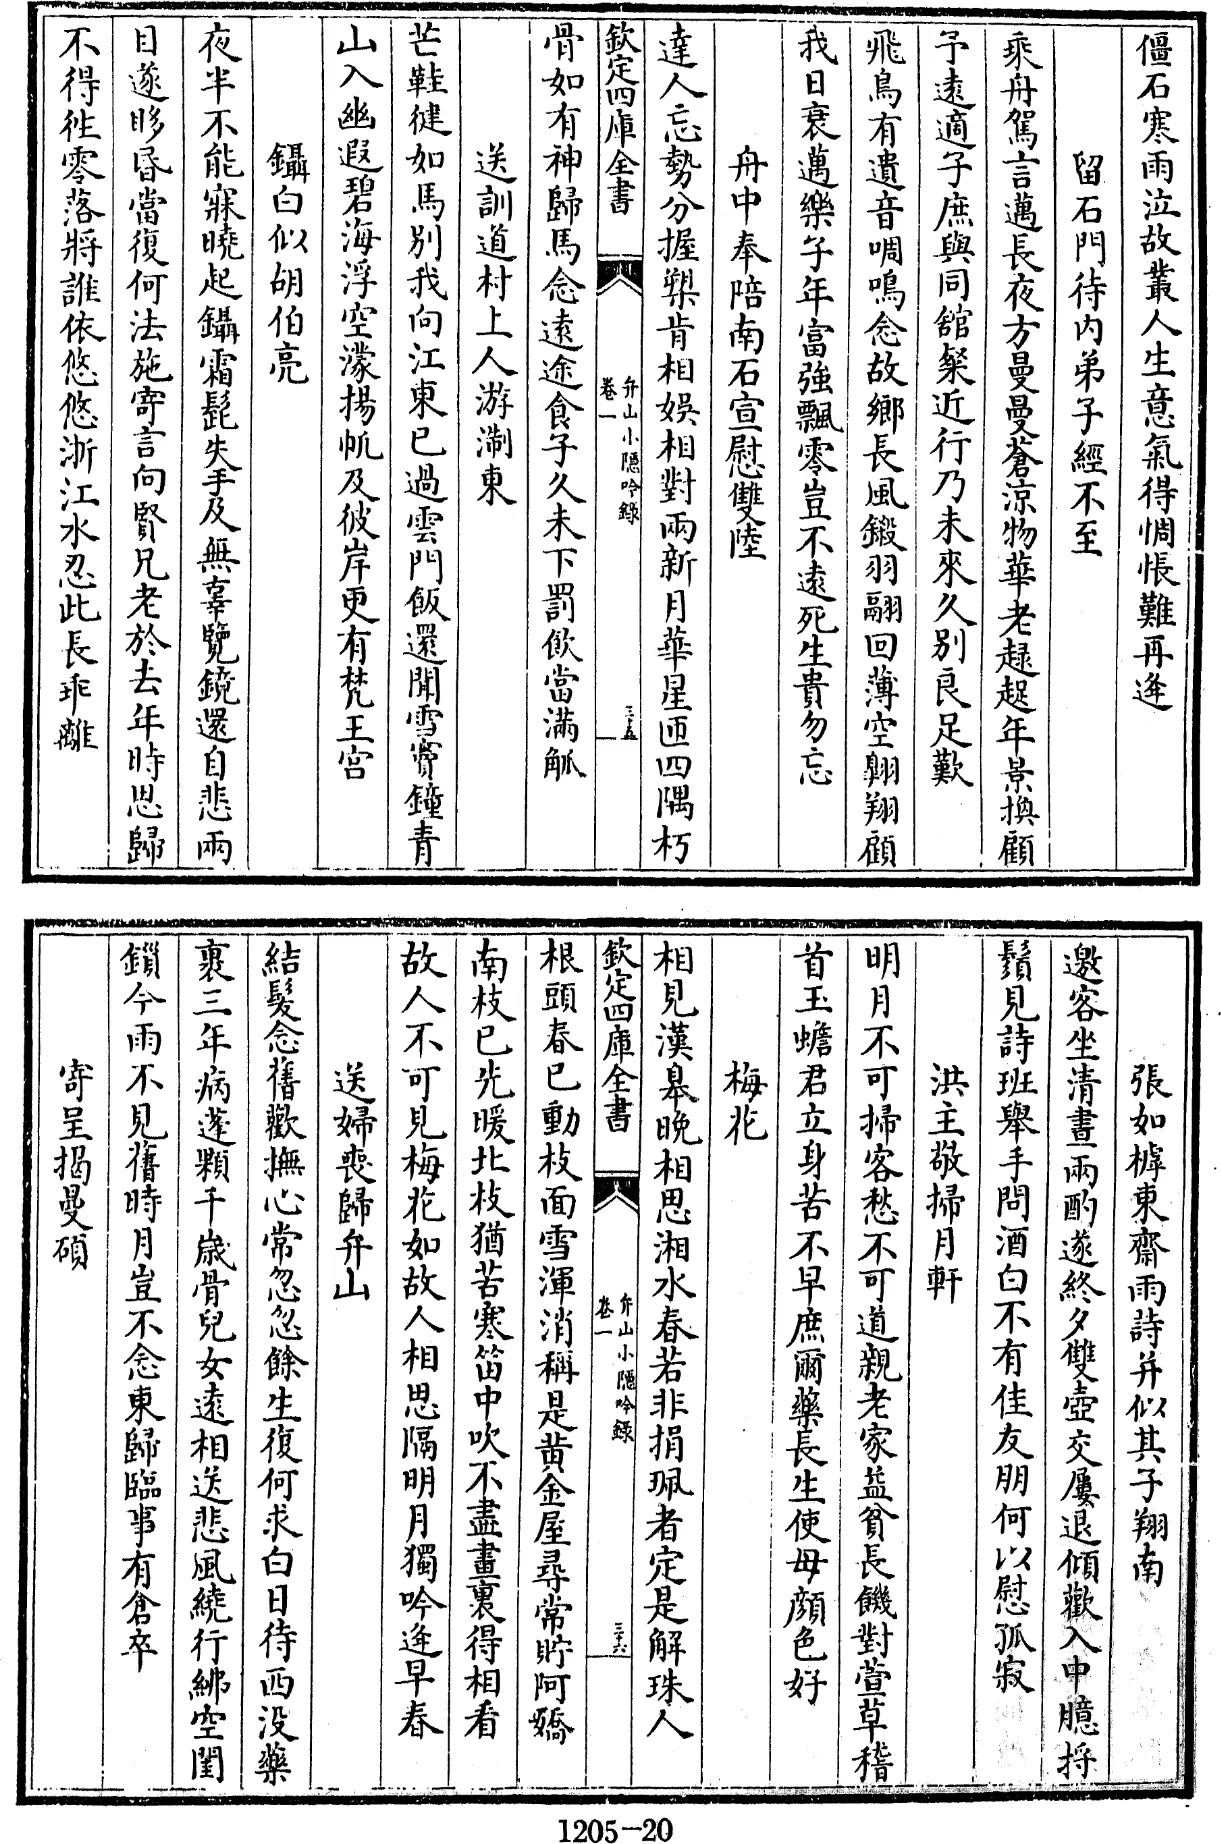 僵石寒雨泣故叢人生意氣得惆悵難再逢
留石門待内弟子經不至
乘舟駕言邁長夜方曼曼蒼涼物華老趢起年景換顧
予遠適子庶與同館粲近行乃未來久别良足歎
飛鳥有遺音啁鳴念故鄉長風鍛羽翮回薄空翺翔顧
我日衰邁樂子年富強飄零豈不遠死生貴勿忘
舟中奉陪南石宣慰雙陸
達人忘勢分握槊肯相娛相對兩新月華星匝四隅朽
欽定四庫全書
弁山小隱吟錄
卷一
三十五
骨如有神歸馬念遠途食子久未下罰飲當滿觚
送訓道村上人游淛東
芒鞋健如馬别我向江東已過雲門飯還聞雪竇鐘青
山入幽遐碧海浮空濛揚帆及彼岸更有梵王宫
鑷白似胡伯亮
夜半不能寐曉起鑷霜髭失手及無辜覽鏡還自悲兩
目遂眵昏當復何法施寄言向賢兄老於去年時思歸
不得徃零落將誰依悠悠浙江水忍此長乖離
張如樗東齋雨詩并似其子翔南
邀客坐清晝雨酌遂終夕雙壺交屢退傾歡入中臆捋
鬚見詩班舉手問酒白不有佳友朋何以慰孤寂
洪主敬掃月軒
明月不可掃客愁不可道親老家益貧長饑對萱草稽
首玉蟾君立身苦不早庶爾藥長生使母顔色好
梅花
相見漢臯晩相思湘水春若非捐珮者定是解珠人
欽定四庫全書
弁山小隱吟錄
卷一
三十六
根頭春已動枝面雪渾消稱是黄金屋尋常貯阿嬌
南枝已先暖北枝猶苦寒笛中吹不盡畫裏得相看
故人不可見梅花如故人相思隔明月獨吟逢早春
送婦喪歸弁山
結髮念舊歡撫心常忽忽餘生復何求白日待西没藥
裹三年病蓬顆千歳骨兒女遠相送悲風繞行紼空閨
鎻今雨不見舊時月豈不念東歸臨事有倉卒
寄呈揭曼碩
1205-20